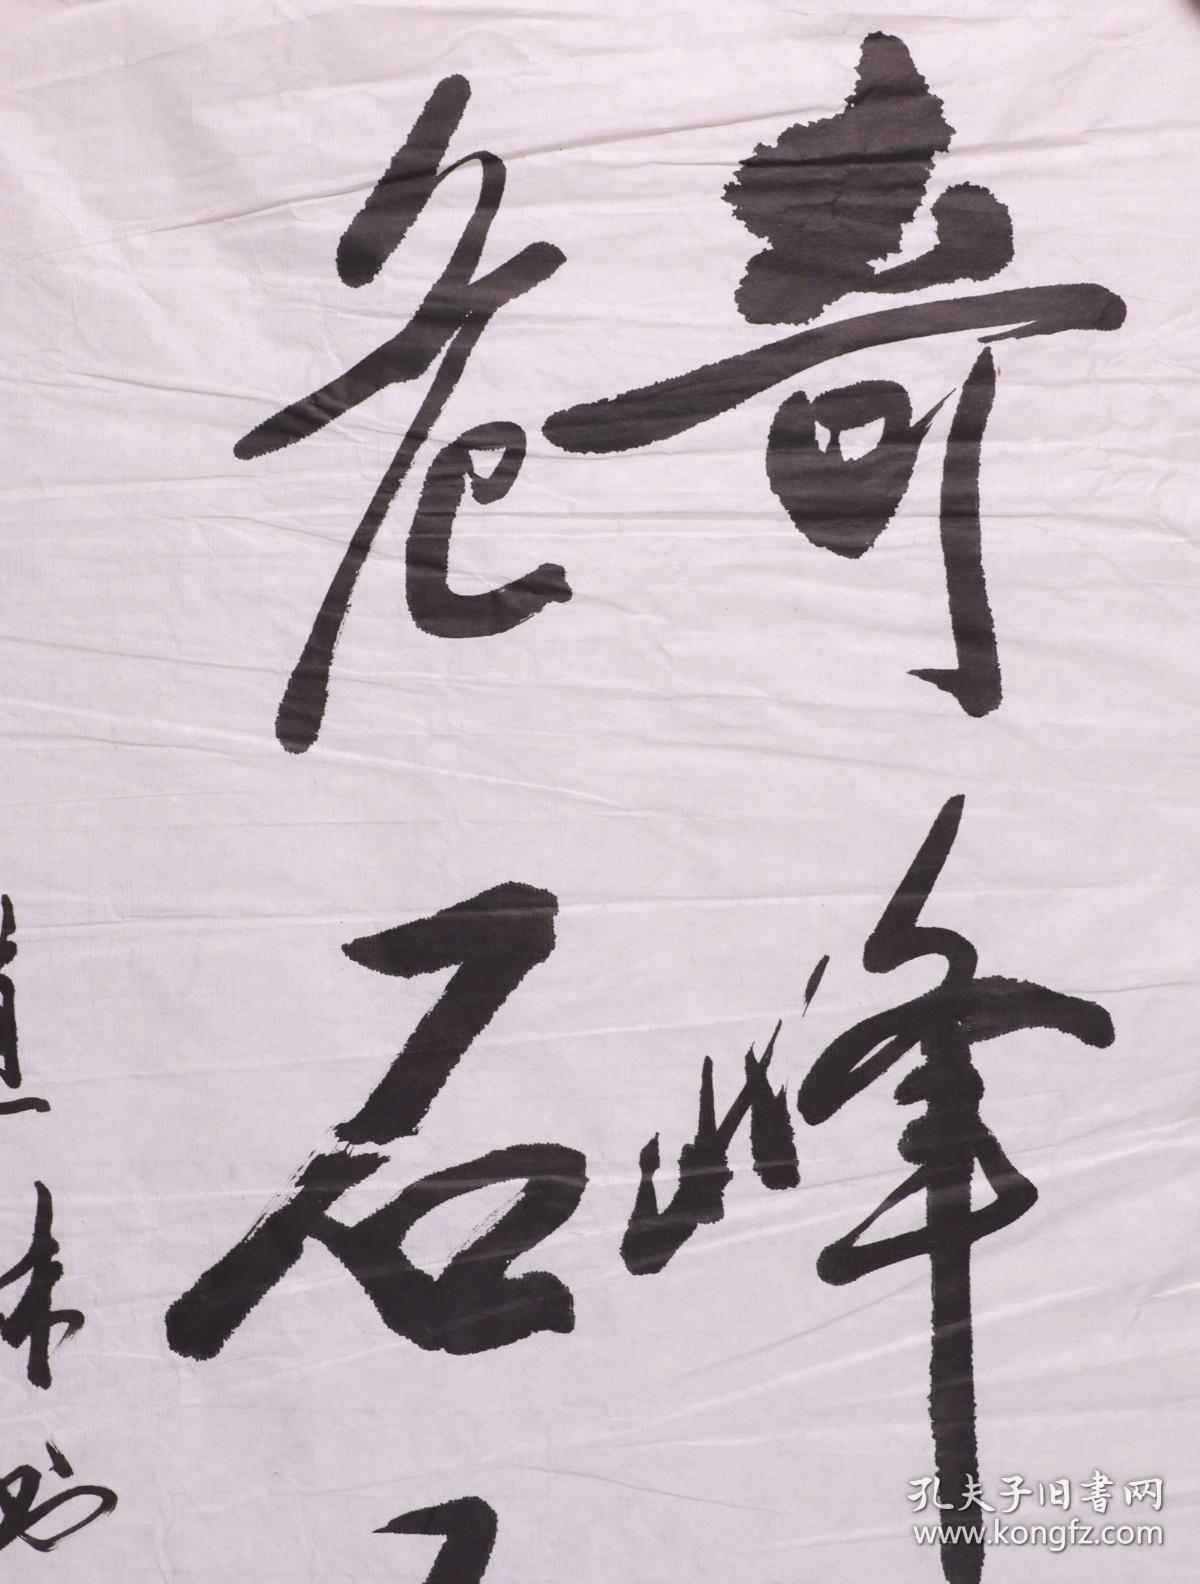 奇峰
危石
林书
孔夫子旧书网
www.kongfz.com